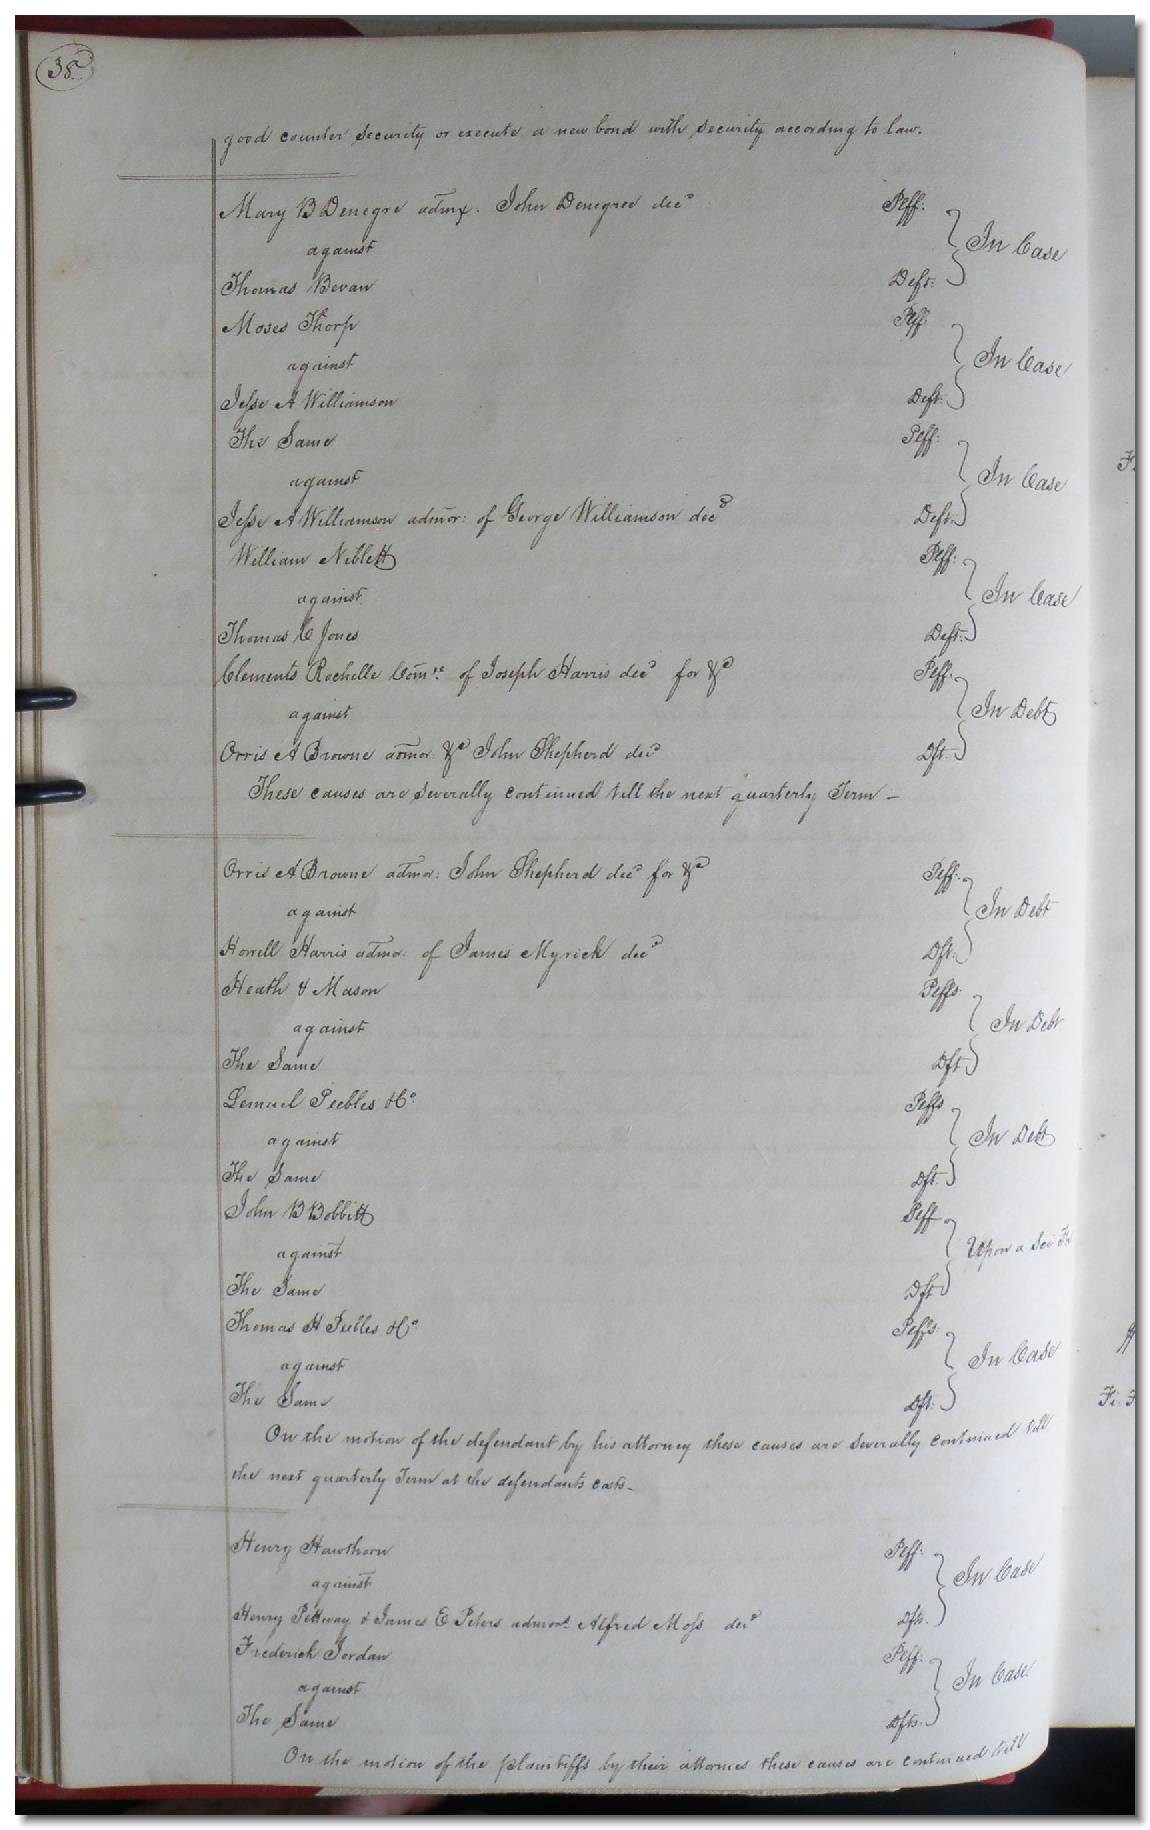 38
good counter security or execute a new bond with security according to law.
Mary B Denegre admx. John Denegree decd Plff:
against } In Case
Thomas Bevan Deft:
Moses Thorp Plff
against } In Case
Jesse A Williamson Deft:
The Same Plff:
against } In Case
Jesse A Williamson admor: of George Williamson decd Deft:
William Niblett Plff:
against } In Case
Thomas C Jones Deft:
Clements Rochelle Comr: of Joseph Harris decd for &c Plff.
against } In Debt
Orris A Browne admor &c John Shepherd decd Dft:
These causes are severally continued till the next quarterly Term –
Orris A Browne admo: John Shepherd decd for &c Plff:
against } In Debt
Howell Harris admo: of James Myrick decd Dft:
Heath & Mason Plffs
against } In Debt
The Same Dft
Lemuel Peebles &Co Plffs
against } In Debt
The Same Dft:
John B Bobbitt Plff
against } Upon a Sci Fa
The Same Dft
Thomas H Peebles &Co Plffs:
against } In Case
The Same Dft:
On the motion of the defendant by his attorney these causes are severally continued till
the next quarterly Term at the defendants costs –
Henry Hawthorn Plff:
against } In Case
Henry Pettway & James E Peters admors Alfred Moss decd Dfts.
Frederick Jordan Plff:
against } In Case
The Same Dfts.
On the motion of the plaintiffs by their attornies these causes are continued till